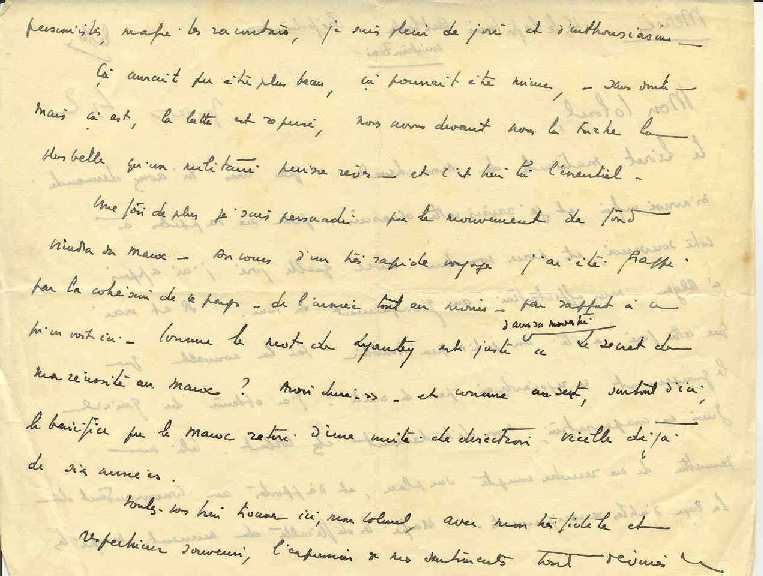 pessimistes, malgré les racontars, je suis plein de joie et d'enthousiasme
Ça aurait pu être plus beau, ça pourrait être mieux, - sans doute -
Mais ça est, la lutte est reprise, nous avons devant nous la tâche la
plus belle qu'un militaire puisse rêver - et c'est bien là l'essentiel -
Une fois de plus je suis persuadé que le mouvement de fond
viendra du Maroc - Au cours d'un très rapide voyage j'ai été frappé
par la cohésion de ce pays - de l'armée tout au moins - par rapport à ce
qu'on voit ici - Comme le mot de Lyautey est juste "Le secret de
ma réussite au Maroc ? durée" - et comme on sent, surtout d'ici,
le bénéfice que le Maroc retire d'une unité de direction vieille déjà
de six années.
Voulez-vous bien trouver ici, mon Colonel, avec mon très fidèle et
respectueux souvenir, l'expression de mes sentiments tout dévoués